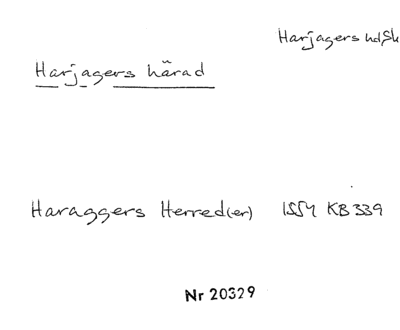 Harjagers hd, Sk
Harjagers härad
Haraggers Herred(er) 1554 KB 339
Nr 20329